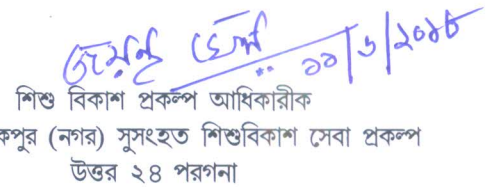 জয়ন্ত ঘোষ ১১/৬/২০১৮
শিশু বিকাশ প্রকল্প আধিকারীক
কপুর (নগর) সুসংহত শিশুবিকাশ সেবা প্রকল্প
উত্তর ২৪ পরগনা